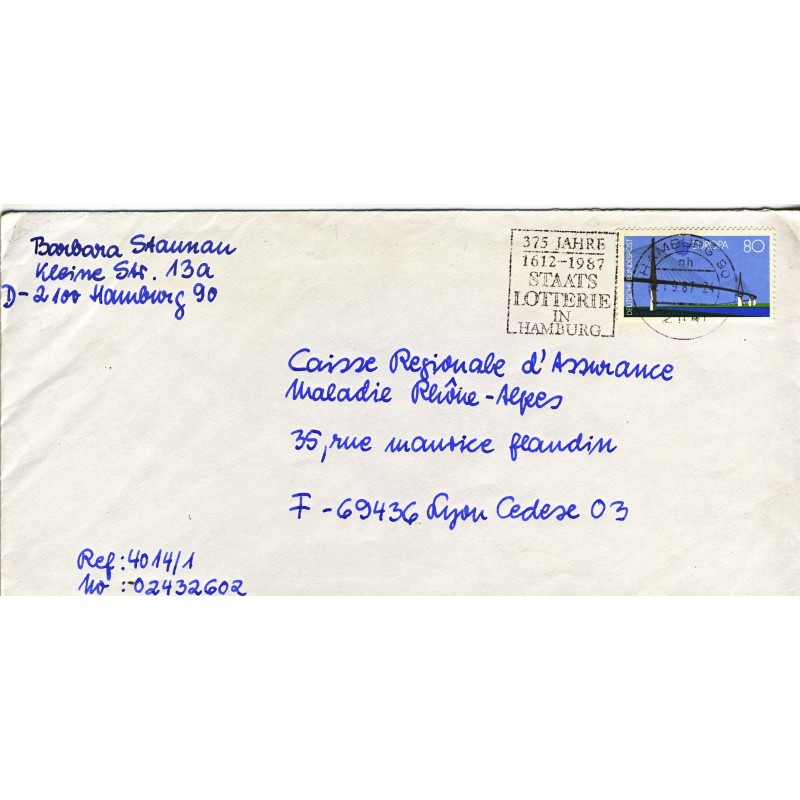 Barbara Staunau
Kleine Str. 13a
D-2100 Hamburg 90
375 JAHRE
1612-1987
STAATS
LOTTERIE
IN
HAMBURG
DEUTSCHE BUNDESPOST
EUROPA
80
HAMBURG 90
ah
Caisse Regionale d'Assurance
Maladie Rhône-Alpes
35, rue maurice flandin
F-69436 Lyon Cedese 03
Ref: 4014/1
No: 02432602